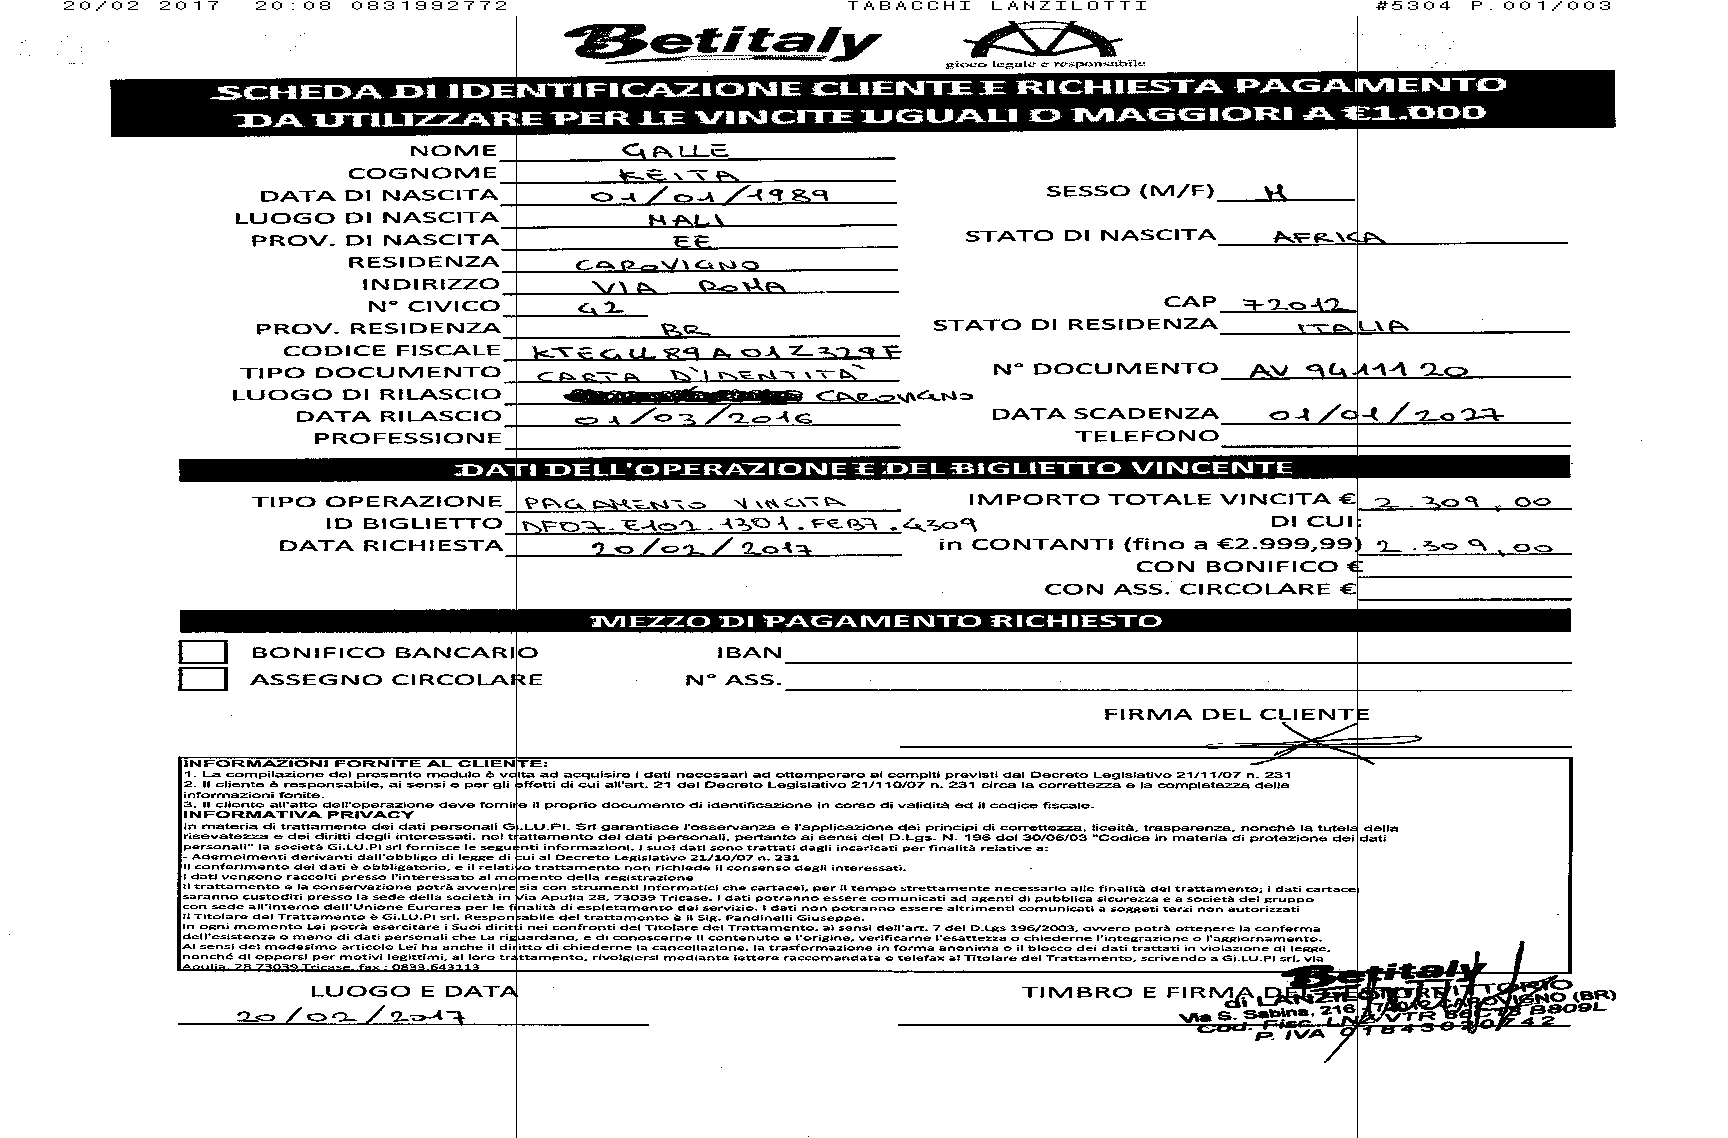 20/02 2017 20:08 0831992772 TABACCHI LANZILOTTI #5304 P.001/003
Betitaly
gioco legale e responsabile
SCHEDA DI IDENTIFICAZIONE CLIENTE E RICHIESTA PAGAMENTO
DA UTILIZZARE PER LE VINCITE UGUALI O MAGGIORI A €1.000
NOME GALLE
COGNOME KEITA
DATA DI NASCITA 01/01/1989 SESSO (M/F) M
LUOGO DI NASCITA MALI
PROV. DI NASCITA EE STATO DI NASCITA AFRICA
RESIDENZA CAROVIGNO
INDIRIZZO VIA ROMA
N° CIVICO 42 CAP 72012
PROV. RESIDENZA BR STATO DI RESIDENZA ITALIA
CODICE FISCALE KTEGLL89A01Z329F
TIPO DOCUMENTO CARTA D'IDENTITÀ N° DOCUMENTO AV 9411120
LUOGO DI RILASCIO CAROVIGNO
DATA RILASCIO 01/03/2016 DATA SCADENZA 01/01/2027
PROFESSIONE TELEFONO
DATI DELL'OPERAZIONE E DEL BIGLIETTO VINCENTE
TIPO OPERAZIONE PAGAMENTO VINCITA IMPORTO TOTALE VINCITA € 2.309,00
ID BIGLIETTO DF07.E102.1301.FEB7.4309 DI CUI:
DATA RICHIESTA 20/02/2017 in CONTANTI (fino a €2.999,99) 2.309,00
CON BONIFICO €
CON ASS. CIRCOLARE €
MEZZO DI PAGAMENTO RICHIESTO
BONIFICO BANCARIO IBAN
ASSEGNO CIRCOLARE N° ASS.
FIRMA DEL CLIENTE
INFORMAZIONI FORNITE AL CLIENTE:
1. La compilazione del presente modulo è volta ad acquisire i dati necessari ad ottemperare ai compiti previsti dal Decreto Legislativo 21/11/07 n. 231
2. Il cliente è responsabile, ai sensi e per gli effetti di cui all'art. 21 del Decreto Legislativo 21/110/07 n. 231 circa la correttezza e la completezza delle
informazioni fonite.
3. Il cliente all'atto dell'operazione deve fornire il proprio documento di identificazione in corso di validità ed il codice fiscale.
INFORMATIVA PRIVACY
In materia di trattamento dei dati personali Gi.LU.PI. Srl garantisce l'osservanza e l'applicazione dei principi di correttezza, liceità, trasparenza, nonché la tutela della
risevatezza e dei diritti degli interessati, nel trattamento dei dati personali, pertanto ai sensi del D.Lgs. N. 196 del 30/06/03 "Codice in materia di protezione dei dati
personali" la società Gi.LU.PI srl fornisce le seguenti informazioni. I suoi dati sono trattati dagli incaricati per finalità relative a:
- Adempimenti derivanti dall'obbligo di legge di cui al Decreto Legislativo 21/10/07 n. 231
Il conferimento dei dati è obbligatorio, e il relativo trattamento non richiede il consenso degli interessati.
I dati vengono raccolti presso l'interessato al momento della registrazione
Il trattamento e la conservazione potrà avvenire sia con strumenti informatici che cartacei, per il tempo strettamente necessario alle finalità del trattamento; i dati cartacei
saranno custoditi presso la sede della società in Via Apulia 28, 73039 Tricase. I dati potranno essere comunicati ad agenti di pubblica sicurezza e a società del gruppo
con sede all'interno dell'Unione Eurorea per le finalità di espletamento del servizio. I dati non potranno essere altrimenti comunicati a soggeti terzi non autorizzati
Il Titolare del Trattamento è Gi.LU.PI srl. Responsabile del trattamento è il Sig. Pandinelli Giuseppe.
In ogni momento Lei potrà esercitare i Suoi diritti nei confronti del Titolare del Trattamento, ai sensi dell'art. 7 del D.Lgs 196/2003, ovvero potrà ottenere la conferma
dell'esistenza o meno di dati personali che La riguardano, e di conoscerne il contenuto e l'origine, verificarne l'esattezza o chiederne l'integrazione o l'aggiornamento.
Ai sensi del medesimo articolo Lei ha anche il diritto di chiederne la cancellazione, la trasformazione in forma anonima o il blocco dei dati trattati in violazione di legge,
nonché di opporsi per motivi legittimi, al loro trattamento, rivolgiersi mediante lettera raccomandata o telefax al Titolare del Trattamento, scrivendo a Gi.LU.PI srl, via
Apulia, 28 73039 Tricase, fax : 0833.643113
LUOGO E DATA TIMBRO E FIRMA DEL
20/02/2017
Betitaly
di
Via S. Sabina, 216 CAROVIGNO (BR)
Cod. Fisc. B809L
P. IVA